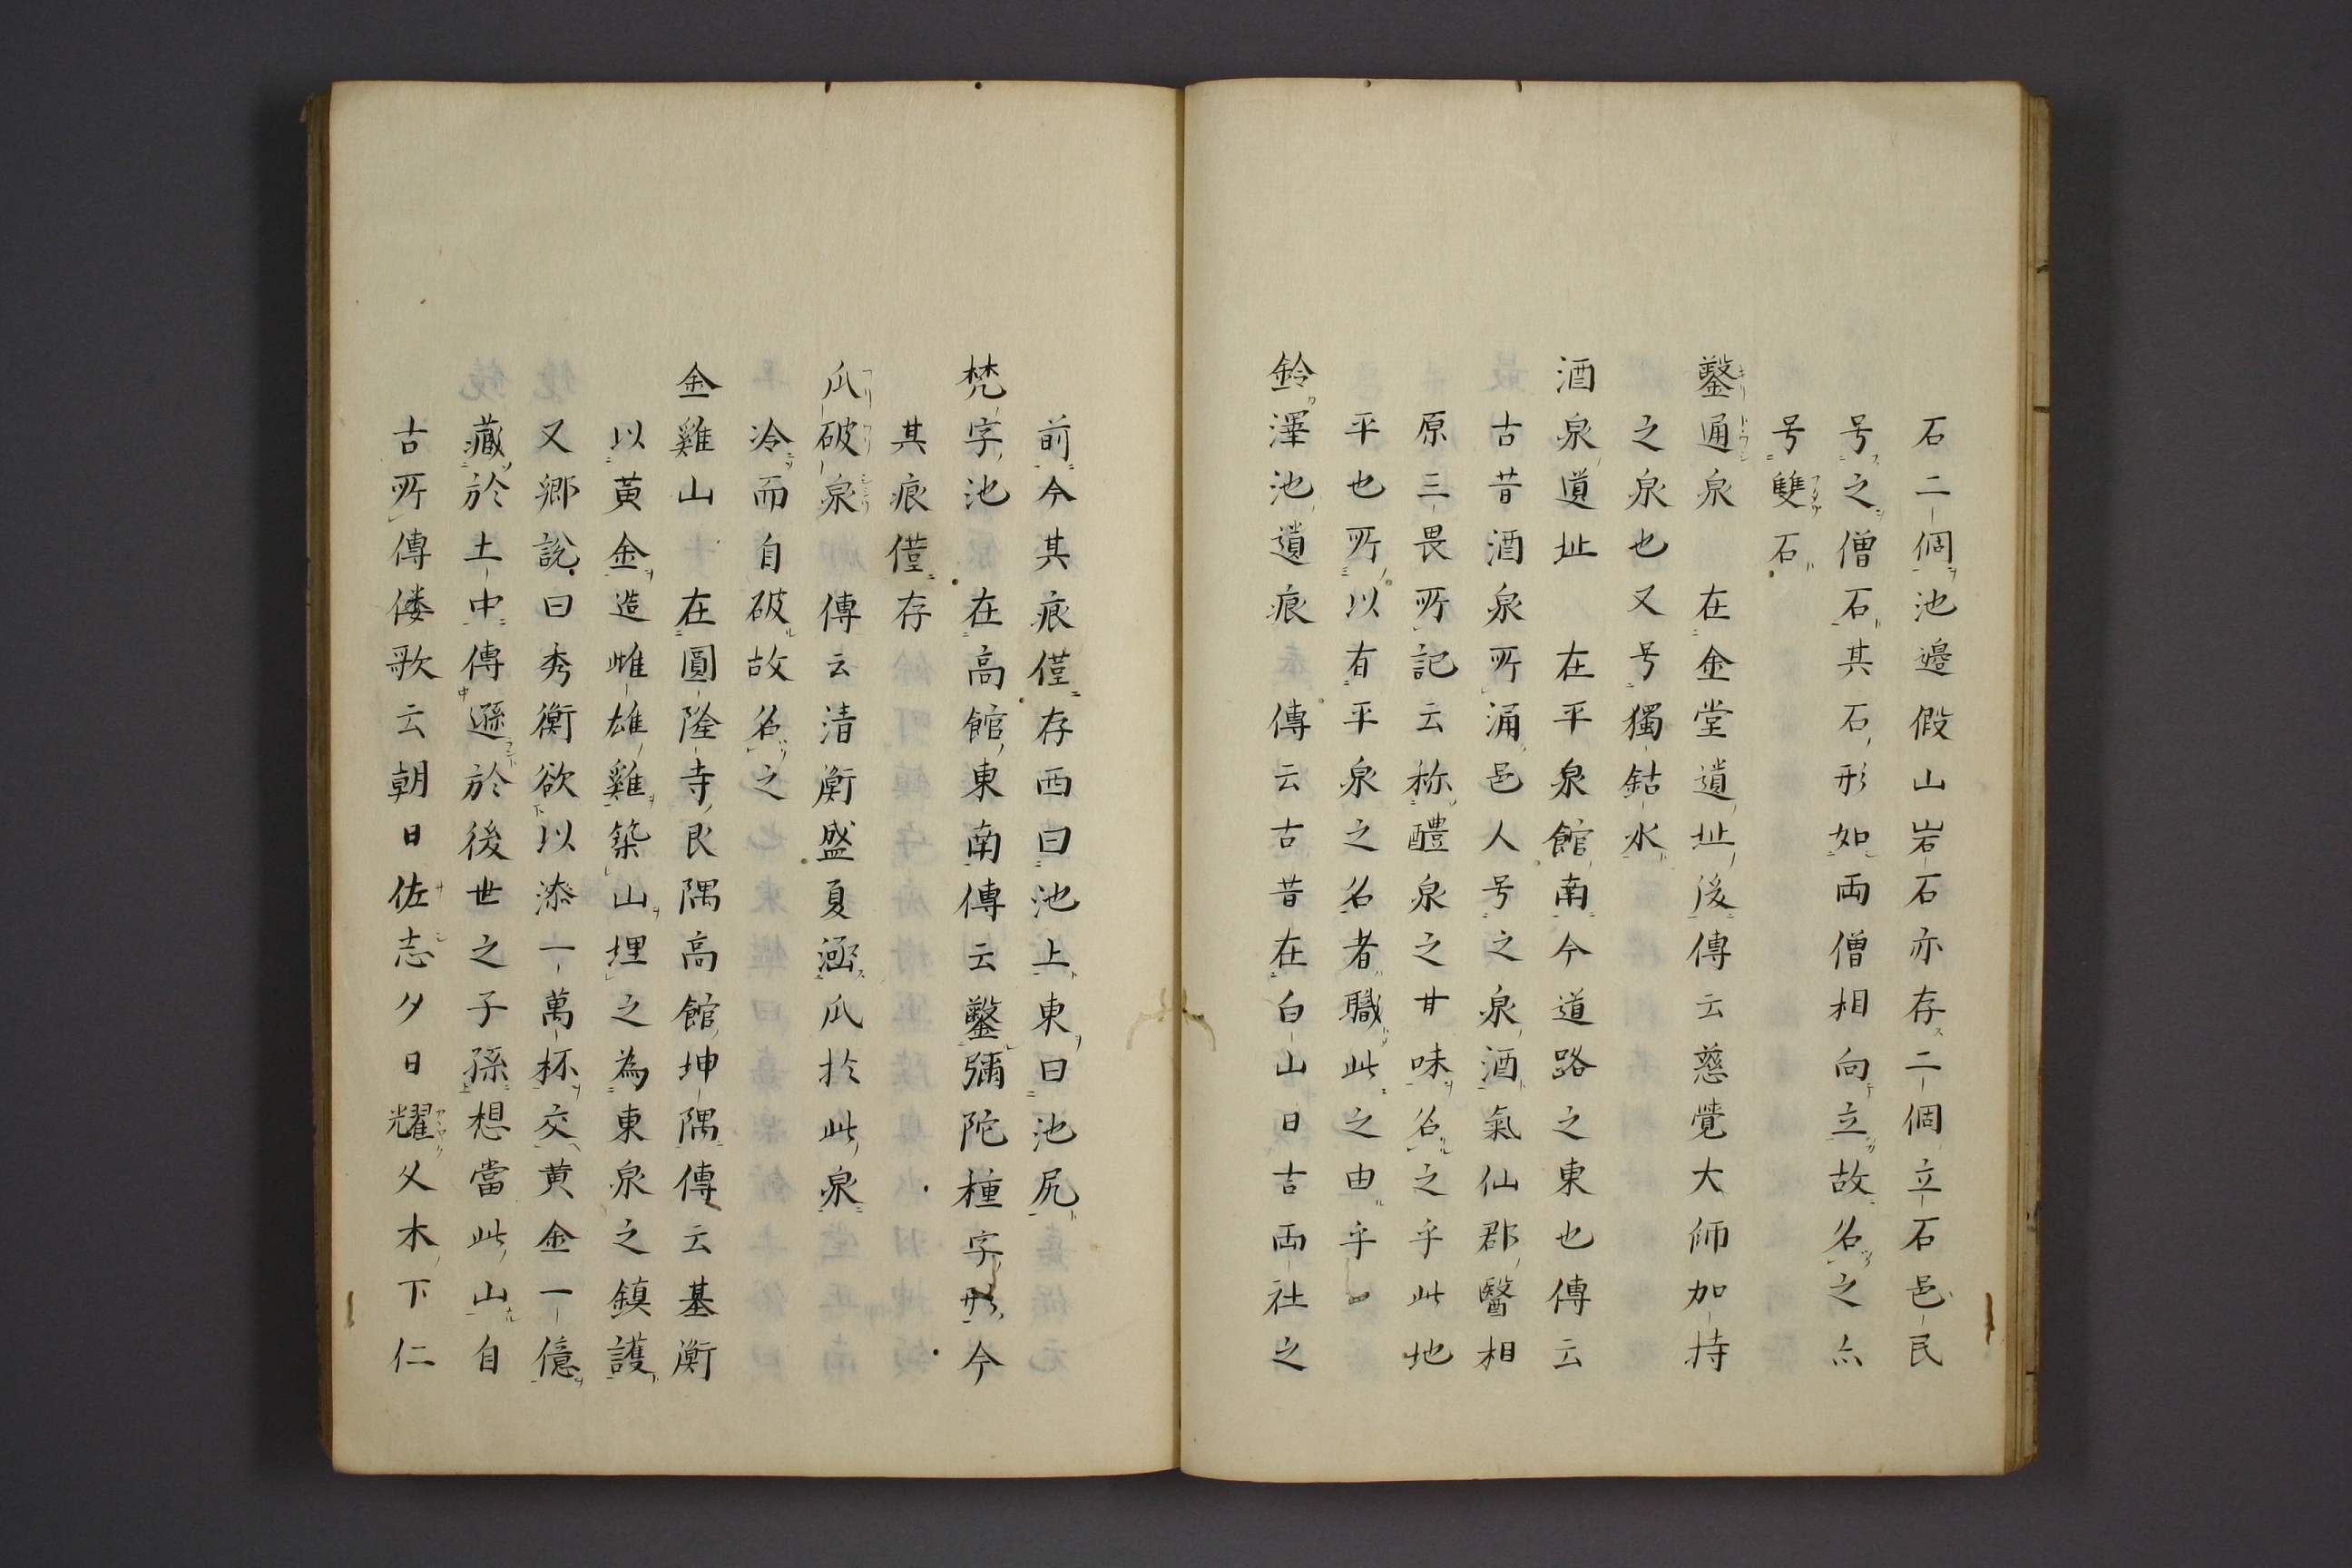 石二個池邉假山岩石亦存二個立石邑民
号之僧石其石形如両僧相向立故名之亦
号雙石
鑿通泉　在金堂遺址後傳云慈覺大師加持
之泉也又号獨鈷水
酒泉道址　在平泉館南今道路之東也傳云
古昔酒泉所涌邑人号之泉酒氣仙郡醫相
原三畏所記云称醴泉之甘味名之乎此地
平也所以有平泉之名者職此之由乎
鈴澤池遺痕　傳云古昔在白山日吉両社之
前今其痕僅存西曰池上東曰池尻
梵字池　在高館東南傳云鑿彌陀種字形今
其痕僅存
瓜破泉　傳云清衡盛夏涵瓜於此泉
冷而自破故名之
金雞山　在圓隆寺艮隅高館坤隅傳云基衡
以黄金造雌雄雞築山埋之為東泉之鎮護
又郷説曰秀衡欲以漆一萬杯交黄金一億
藏於土中傳遜於後世之子孫想當此山自
古所傳倭歌云朝日佐志夕日耀父木下仁